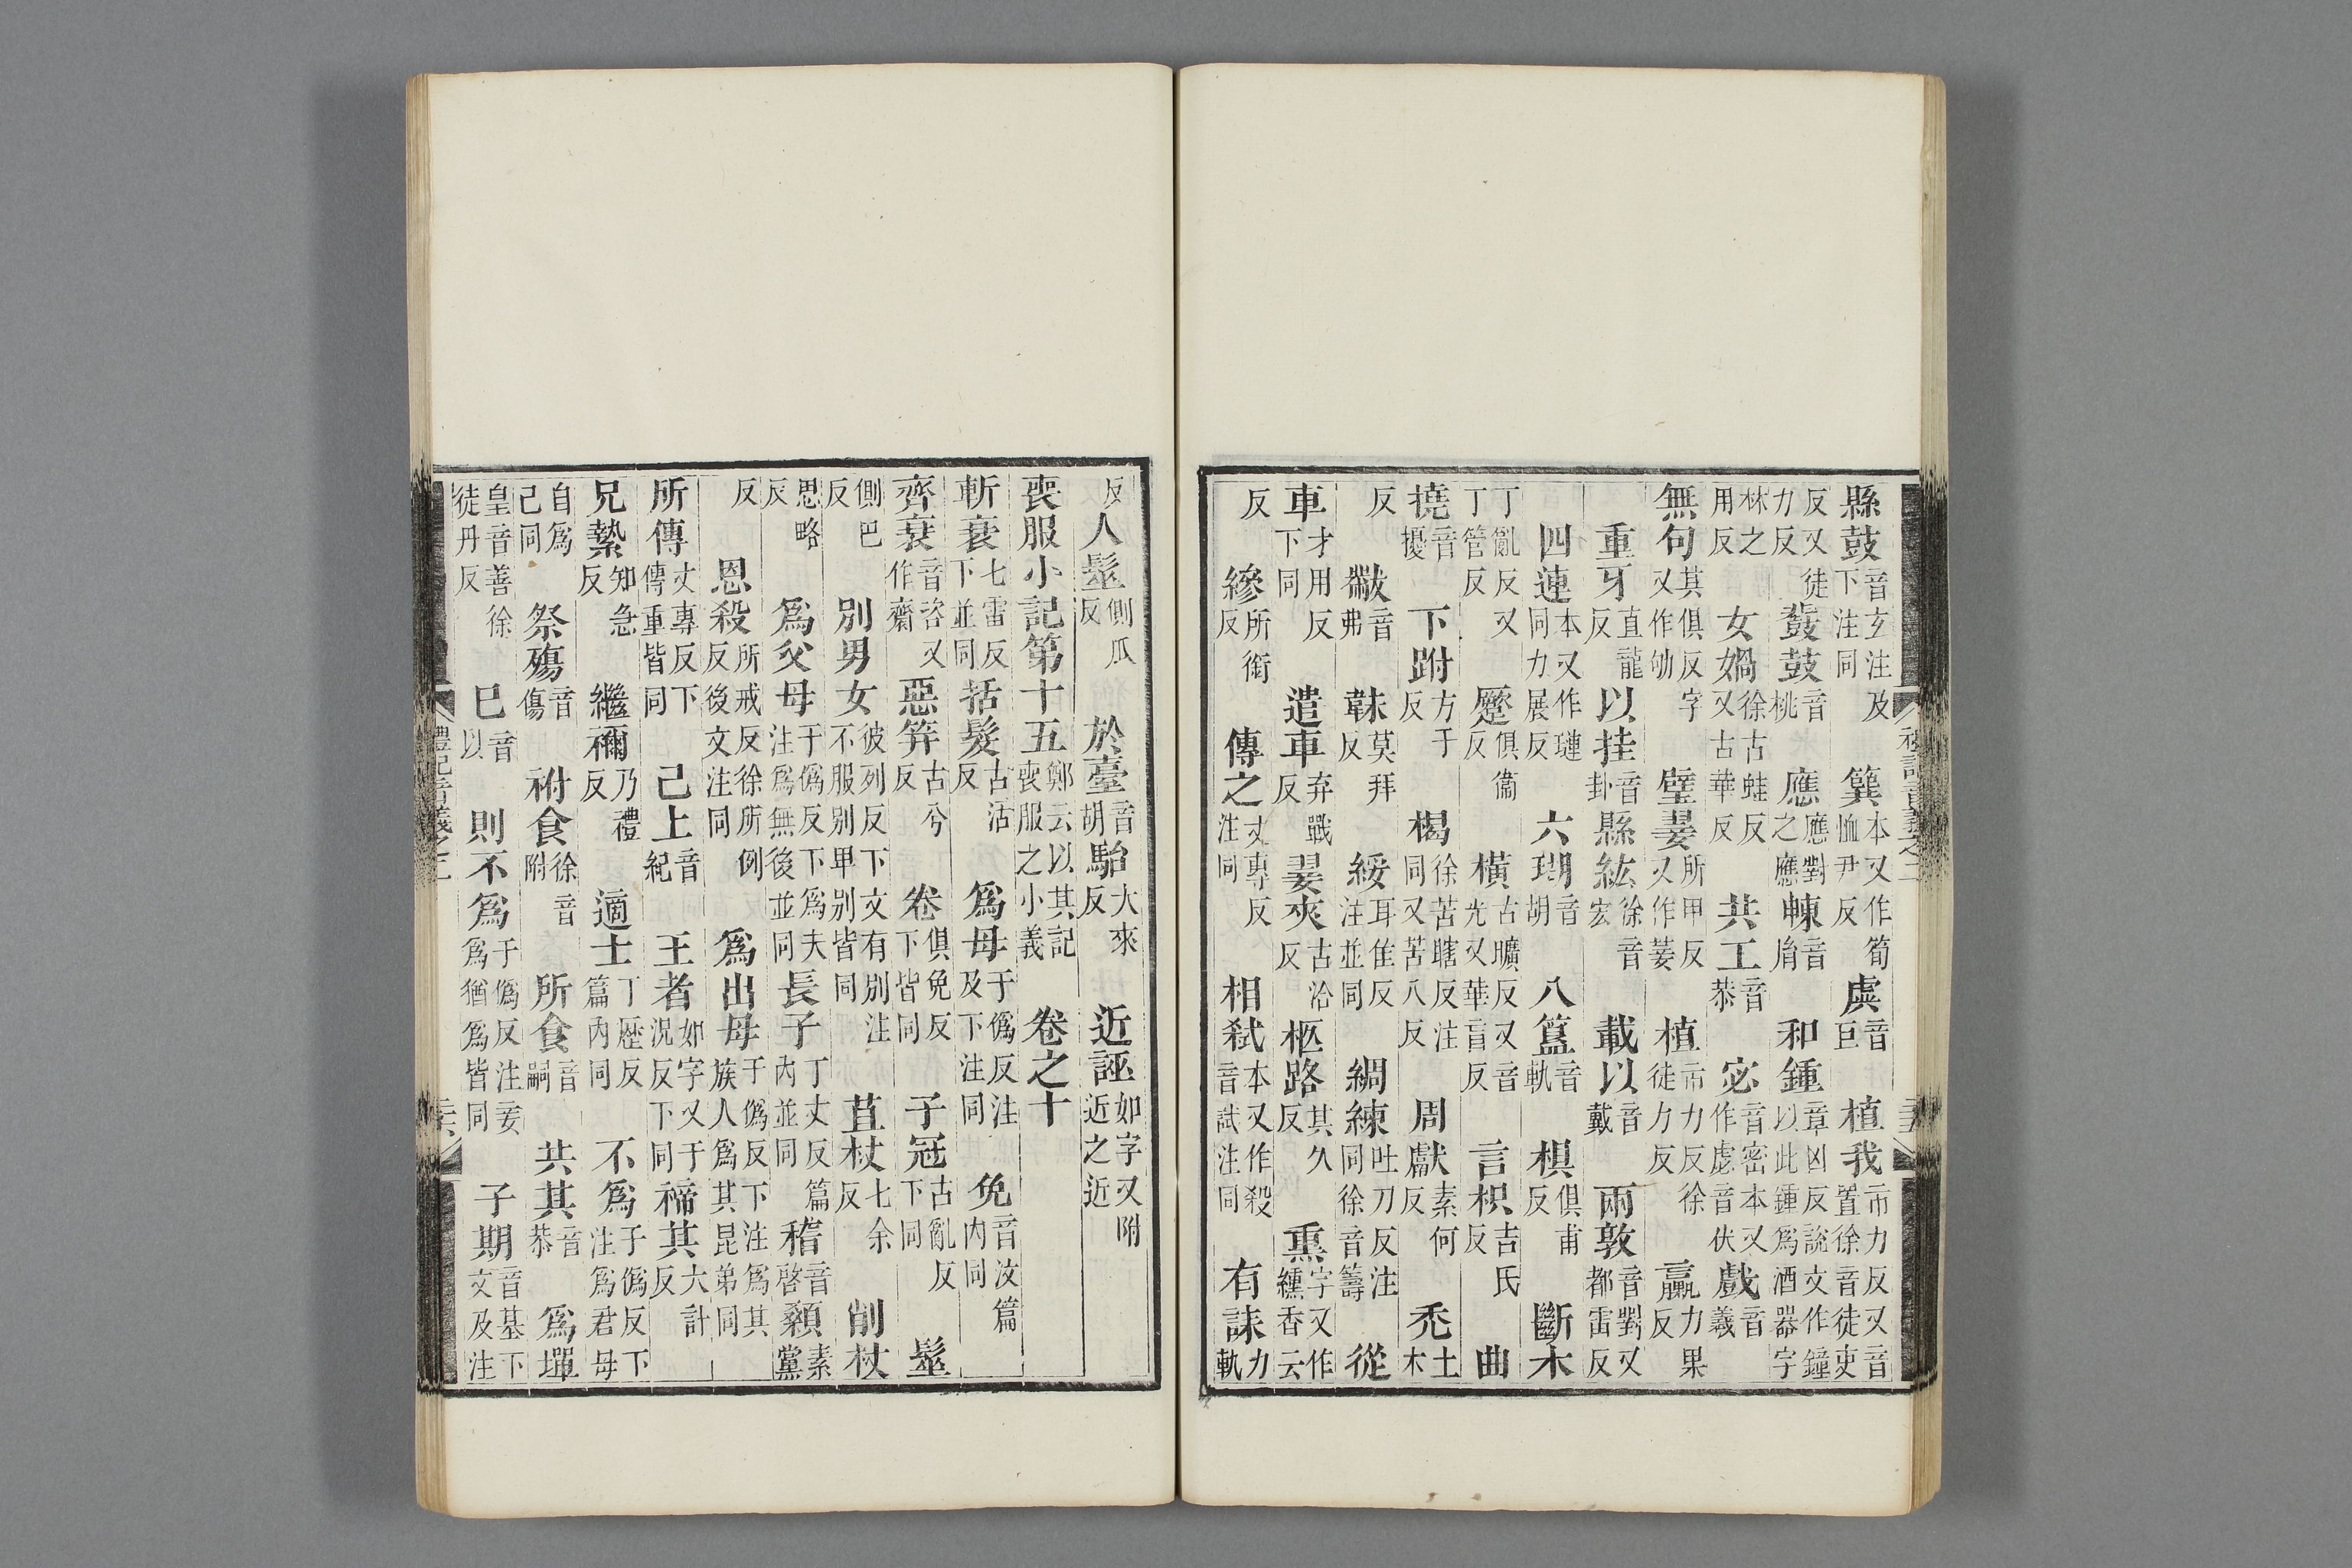 縣鼓音玄注及下注同 簨本又作筍恤尹反 虡音巨 植我市力反又音置徐音徒吏
反又徒力反 鼗鼓音桃 應應對之應 朄音胤 和鍾章凶反說文作鐘以此鍾爲酒器字
林之用反 女媧徐古蛙反又古華反 共工音恭 宓音密本又作虙音伏 戲音義
無句其俱反字又作劬 璧翣所甲反又作䈉 植市力反徐徒力反 羸力果反
重牙直龍反 以挂音卦 縣紘徐音宏 載以音戴 兩敦音對又都雷反
四連本又作璉同力展反 六瑚音胡 八簋音軌 椇俱甫反 斷木
丁亂反又丁管反 蹷俱衞反 橫古曠反又音光又華盲反 言枳吉氏反 曲
撓音擾 下跗方于反 楬徐苦瞎反注同又苦八反 周獻素何反 禿土木
反 黻音弗 韎莫拜反 綏耳隹反注並同 綢練吐刀反注同徐音籌 從
車才用反下同 遣車弃戰反 翣夾古洽反 柩路其久反 熏字又作纁香云
反 縿所銜反 傳之丈專反注同 相弒本又作殺音試注同 有誄力軌
反 人髽側瓜反 於臺音胡 駘大來反 近誣如字又附近之近
喪服小記第十五鄭云以其記喪服之小義 卷之十
斬衰七雷反下並同 括髮古活反 爲母于僞反注及下注同 免音汶篇內同
齊衰音咨又作齋 惡笄古兮反 卷俱免反下皆同 子冠古亂反下同 髽
側巴反 別男女彼列反下文有別注不服别甲别皆同 苴杖七余反 削杖
思略反 爲父母于僞反下爲夫注爲無後並同 長子丁丈反篇內並同 稽音啓 顙素黨
反 恩殺所戒反徐所例反後文注同 爲出母于僞反下注爲其族人爲其昆弟同
所傳丈專反下傳重皆同 己上音紀 王者如字又于況反下同 禘其大計反
兄縶知急反 繼禰乃禮反 適士丁歷反篇內同 不爲于僞反下注爲君母
自爲己同 祭殤音傷 祔食徐音附 所食音嗣 共其音恭 爲墠
皇音善徐徒丹反 巳音以 則不爲于僞反注妾爲猶爲皆同 子期音基下文及注